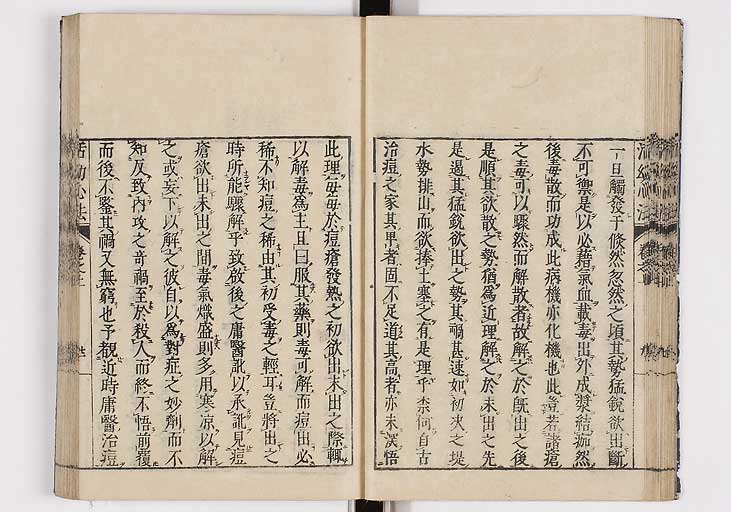 一旦觸發于倏然忽然之頃其勢猛銳欲出斷
不可禦是以必藉氣血載毒出外成漿結痂然
後毒散而功成此病機亦化機也此豈若諸瘡
之毒可以驟然而解散者故解之於既出之後
是順其欲散之勢猶爲近理解之於未出之先
是遏其猛銳欲出之勢其禍甚速如初决之堤
水勢排山而欲捧土塞之有是理乎柰何自古
治痘之家其卑者固不足道其高者亦未深悟
此理每每於痘瘡發熱之初欲出未出之際輒
以解毒爲主且曰服其藥則毒可解而痘出必
稀不知痘之稀由其初受毒之輕耳豈將出之
時所能驟解乎致啟後之庸醫訛以承訛見痘
瘡欲出未出之間毒氣熾盛則多用寒凉以解
之或妄下以解之彼自以爲對症之妙劑而不
知反致內攻之竒禍至於殺人而終不悟前覆
而後不鑒其禍又無窮也予觀近時庸醫治痘
活幼心法
卷之三